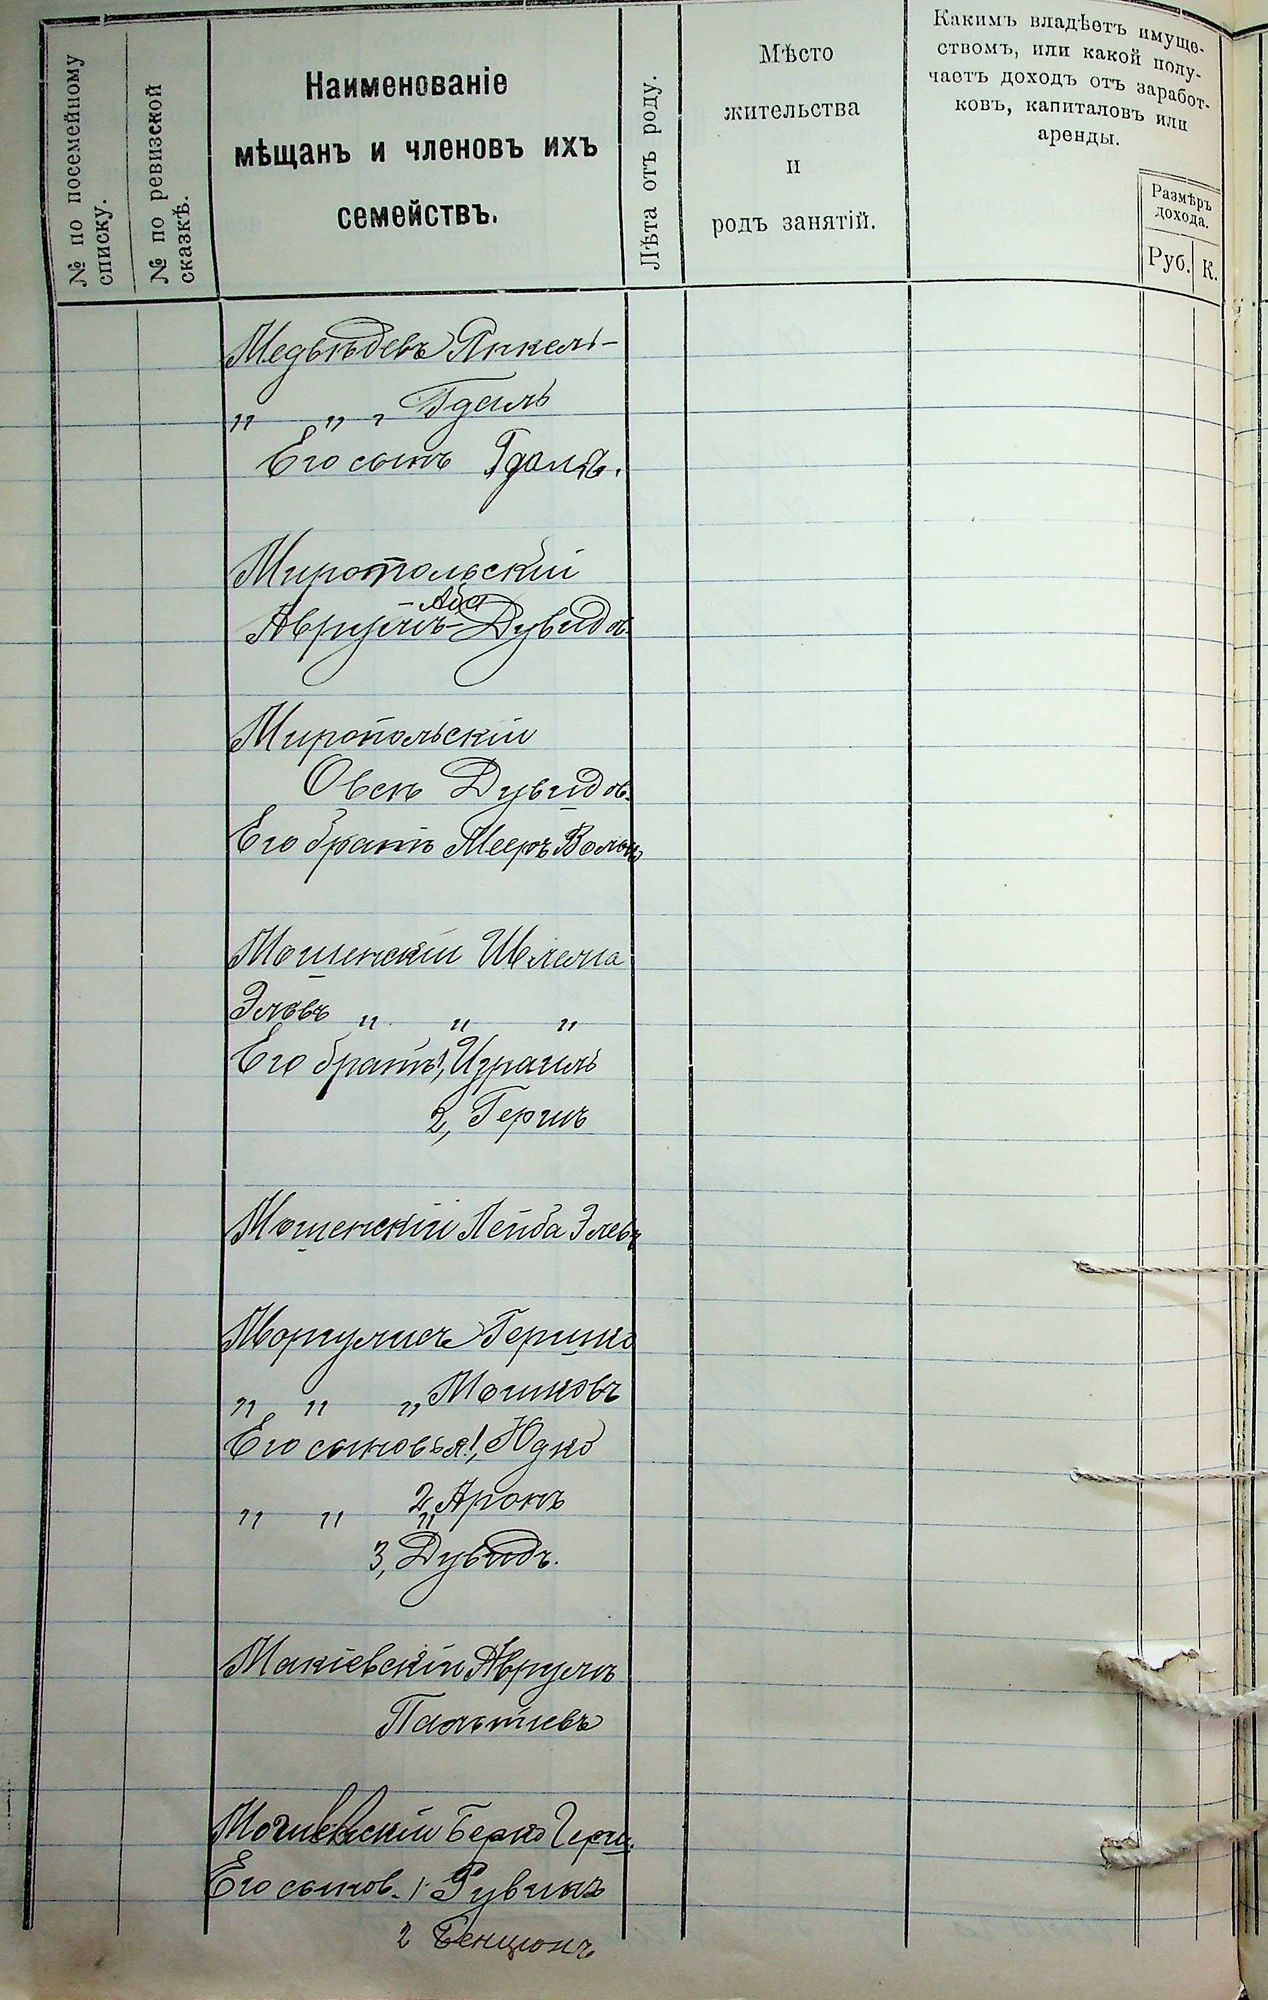 № по посемейному
списку.
№ по ревизской
сказкѣ.
Наименованіе
мѣщанъ и членовъ ихъ
семействъ.
Лѣта отъ роду.
Мѣсто
жительства
и
родъ занятій.
Какимъ владѣетъ имуще-
ствомъ, или какой полу-
чаетъ доходъ отъ заработ-
ковъ, капиталовъ или
аренды.
Размѣръ
дохода.
Руб. К.
Медвѣдевъ Янкель-
" " " Гдаль
Его сынъ
Миропольскій
Аба
Аврумъ-Дувидов.
Миропольскій
Овсѣ Дувидов.
Его братъ Мееръ Вольн
Мошенскій Шлема
Элевъ " " "
Его братъ 1, Израиль
2, Герша
Мошенскій Лейба Элевъ
Моргулисъ Гершко
" " " Мошковъ
Его сыновья 1, Юдко
" " 2, Аронъ
3, Дувидъ.
Макіевскій Аврумъ
Берко Герш.
Его сынов. 1 Рувинъ
2 Бенціонъ